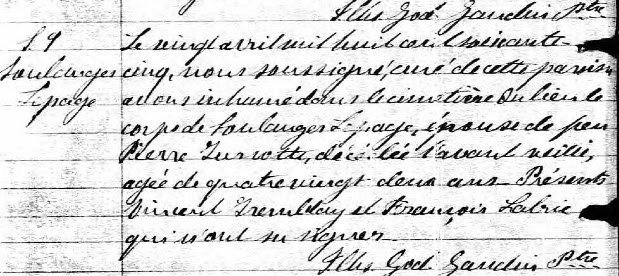 Ths God. Gaudin Ptre
S 9
Soulanges
Lepage
Le vingt avril mil huit cent soixante
cinq, nous soussigné, curé de cette paroisse
avons inhumé dans le cimetière du lieu le
corps de Soulanges Lepage, épouse de feu
Pierre Turcotte, décédée l'avant veille,
agée de quatre vingt deux ans. Présents
Vincent Tremblay et François Labrie
qui n'ont su signer.
Ths God. Gaudin Ptre